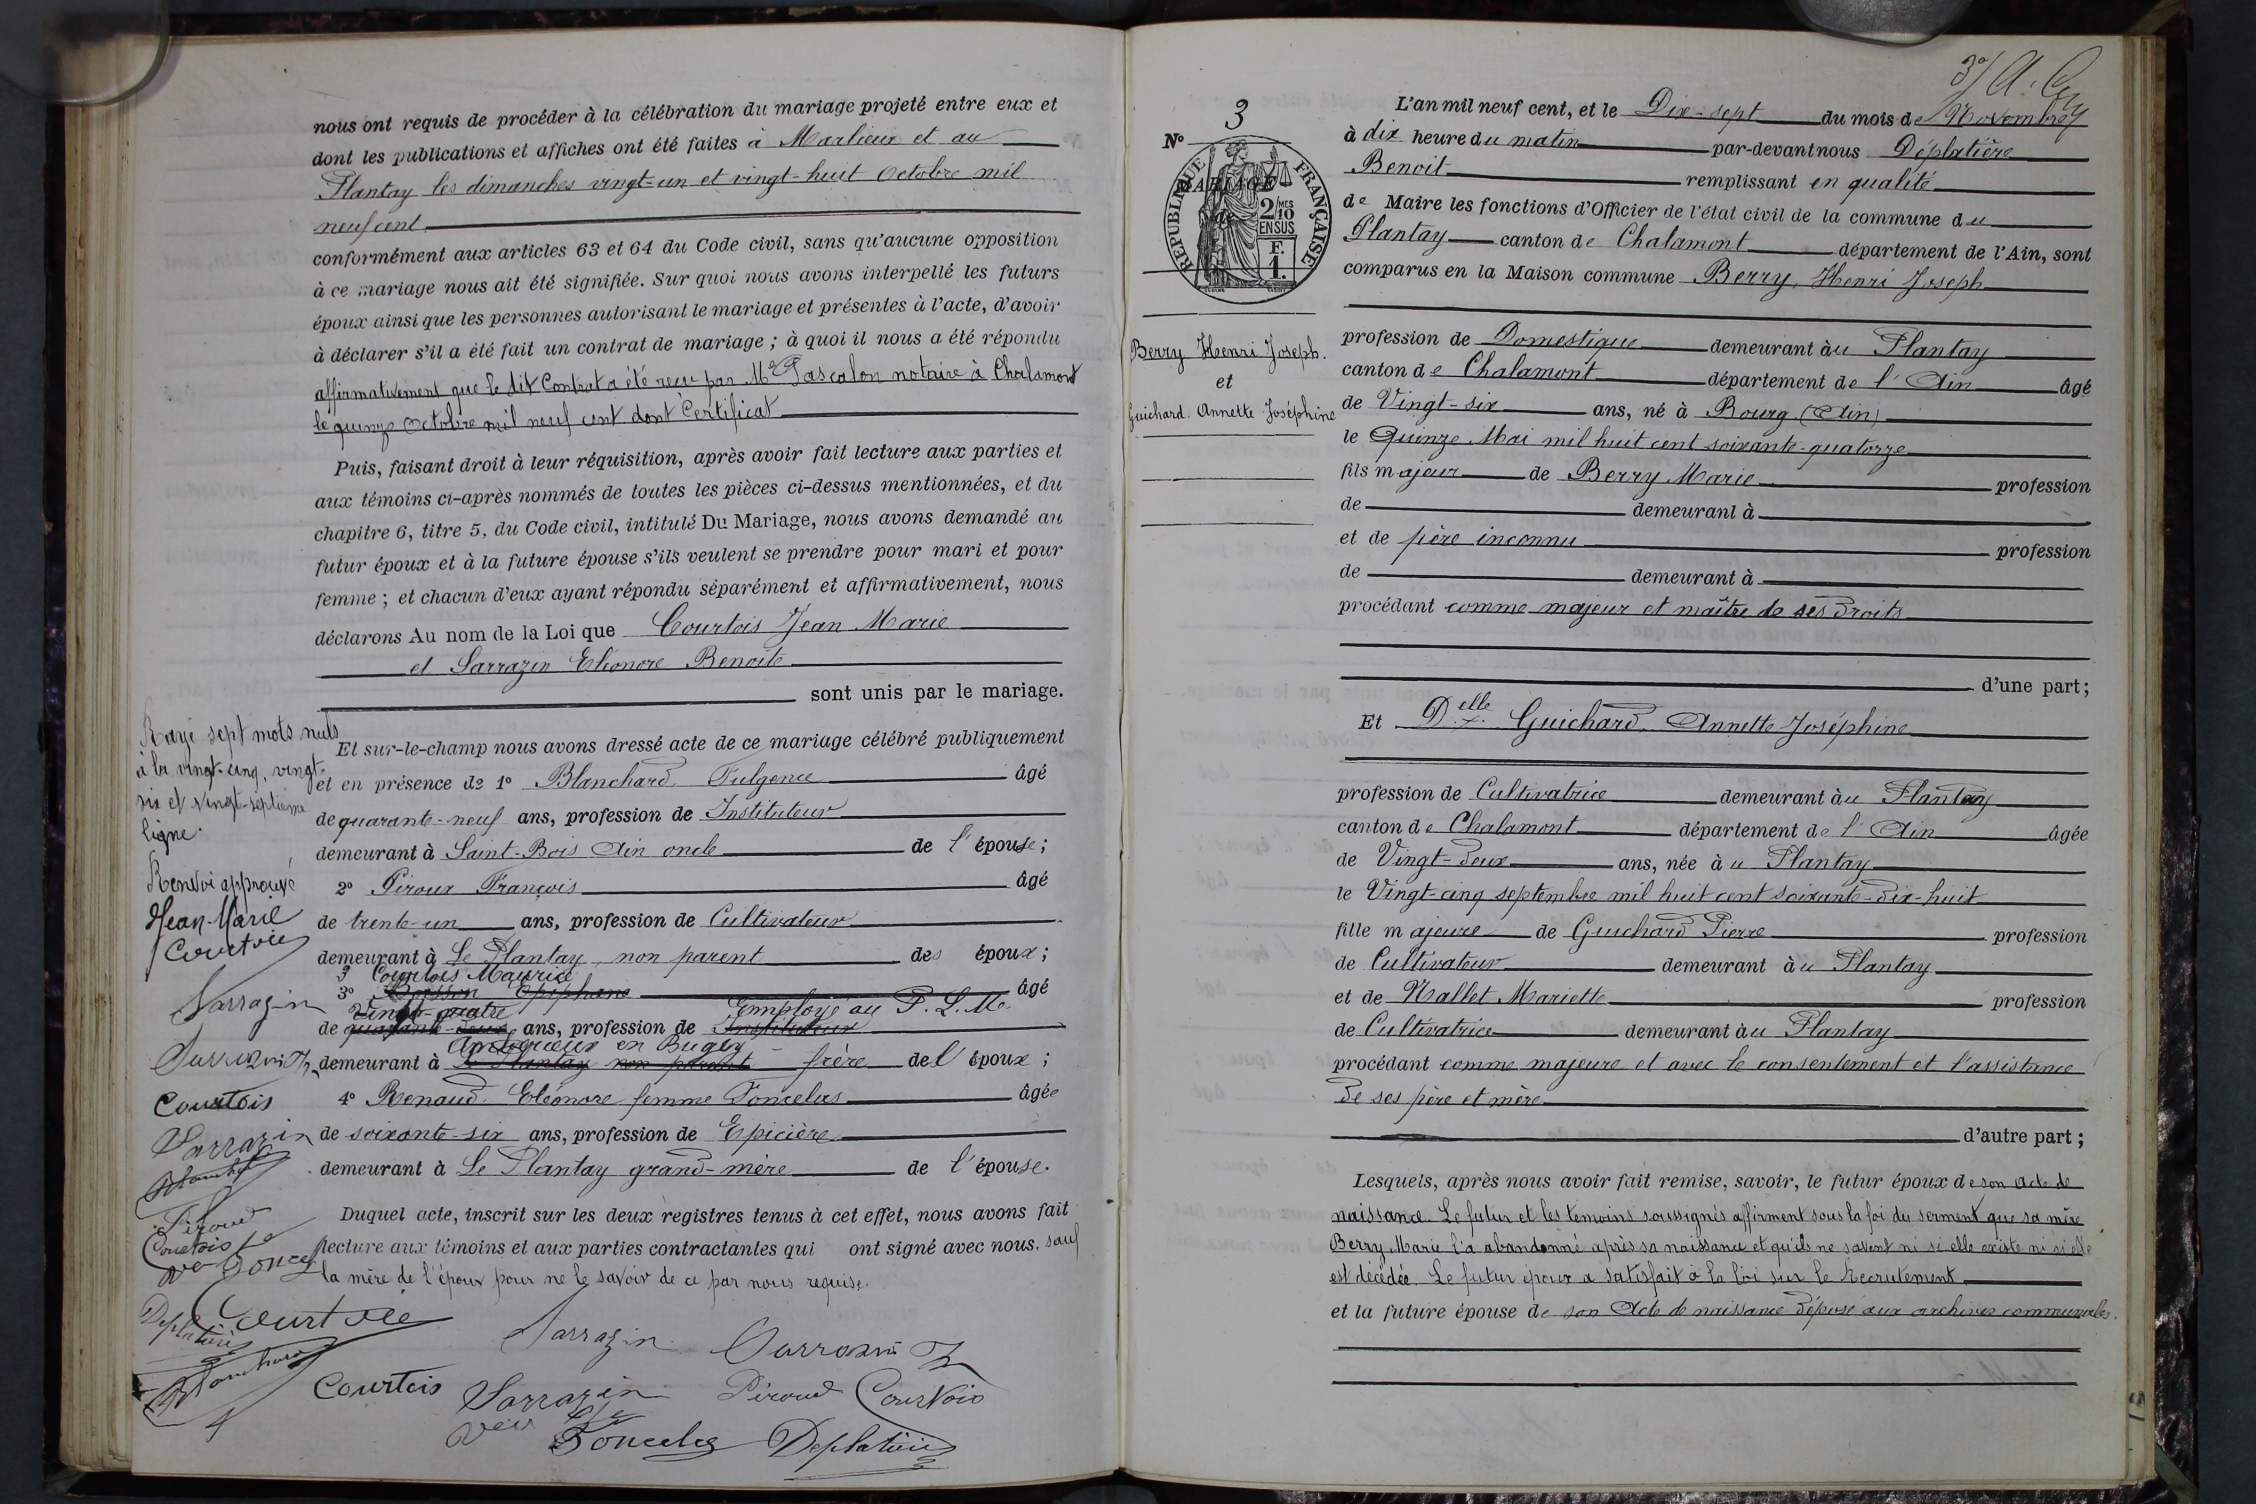 nous ont requis de procéder à la célébration du mariage projeté entre eux et
dont les publications et affiches ont été faites à Marlieux et au
Plantay les dimanches vingt-un et vingt-huit Octobre mil
neuf cent
conformément aux articles 63 et 64 du Code civil, sans qu'aucune opposition
à ce mariage nous ait été signifiée. Sur quoi nous avons interpellé les futurs
époux ainsi que les personnes autorisant le mariage et présentes à l'acte, d'avoir
à déclarer s'il a été fait un contrat de mariage ; à quoi il nous a été répondu
affirmativement que le dit Contrat a été reçu par Me Pascalon notaire à Chalamont
le quinze Octobre mil neuf cent dont Certificat
Puis, faisant droit à leur réquisition, après avoir fait lecture aux parties et
aux témoins ci-après nommés de toutes les pièces ci-dessus mentionnées, et du
chapitre 6, titre 5, du Code civil, intitulé Du Mariage, nous avons demandé au
futur époux et à la future épouse s'ils veulent se prendre pour mari et pour
femme ; et chacun d'eux ayant répondu séparément et affirmativement, nous
déclarons Au nom de la Loi que Courtois Jean Marie
et Sarrazin Eléonore Benoite
sont unis par le mariage.
Et sur-le-champ nous avons dressé acte de ce mariage célébré publiquement
et en présence de 1° Blanchard Fulgence âgé
de quarante-neuf ans, profession de Instituteur
demeurant à Saint-Bois Ain oncle de l'épouse ;
2° Piroux François âgé
de trente-un ans, profession de Cultivateur
demeurant à Le Plantay non parent des époux ;
3 Courtois Maurice
3° Buisson Epiphane âgé
Vingt-quatre Employé au P. L. M.
de quarante-deux ans, profession de Instituteur
Ambérieux en Bugey
demeurant à Le Plantay non parent frère de l'époux ;
4° Renaud Eléonore femme Poncelus âgée
de soixante-six ans, profession de Epicière
demeurant à Le Plantay grand-mère de l'épouse.
Duquel acte, inscrit sur les deux registres tenus à cet effet, nous avons fait
lecture aux témoins et aux parties contractantes qui ont signé avec nous. sauf
la mère de l'époux pour ne le savoir de ce par nous requise.
Courtois
Sarrazin
Courtois Sarrazin Piroud Courtois
Deplatière
Rayé sept mots nuls
à la vingt-cinq, vingt-
six et vingt-septième
ligne.
Renvoi approuvé
Jean-Marie
Courtois
Sarrazin
Courtois
Sarrazin
Piroud
Courtois
Deplatière
3°/
N° 3
RÉPUBLIQUE FRANÇAISE
MARIAGE
de
2/10 MES
EN SUS
F.
1.
Berry Henri Joseph.
et
Guichard Annette Joséphine
L'an mil neuf cent, et le Dix-sept du mois de Novembre
à dix heure du matin par-devant nous Déplatière
Benoit remplissant en qualité
de Maire les fonctions d'Officier de l'état civil de la commune du
Plantay canton de Chalamont département de l'Ain, sont
comparus en la Maison commune Berry, Henri Joseph
profession de Domestique demeurant au Plantay
canton de Chalamont département de l'Ain âgé
de Vingt-six ans, né à Bourg (Ain)
le Quinze Mai mil huit cent soixante-quatorze
fils majeur de Berry Marie profession
de demeurant à
et de père inconnu profession
de demeurant à
procédant comme majeur et maître de ses droits
d'une part ;
Et Delle Guichard Annette Joséphine
profession de Cultivatrice demeurant au Plantay
canton de Chalamont département de l'Ain âgée
de Vingt-deux ans, née àu Plantay
le Vingt-cinq septembre mil huit cent soixante-dix-huit
fille majeure de Guichard Pierre profession
de Cultivateur demeurant àu Plantay
et de Nallet Mariette profession
de Cultivatrice demeurant àu Plantay
procédant comme majeure et avec le consentement et l'assistance
de ses père et mère
d'autre part ;
Lesquels, après nous avoir fait remise, savoir, le futur époux de son acte de
naissance. Le futur et les témoins soussignés affirment sous la foi du serment que sa mère
Berry Marie l'a abandonné après sa naissance et qu'ils ne savent ni si elle existe ni si elle
est décédée. Le futur époux a satisfait à la loi sur le Recrutement
et la future épouse de son Acte de naissance déposé aux archives communales.